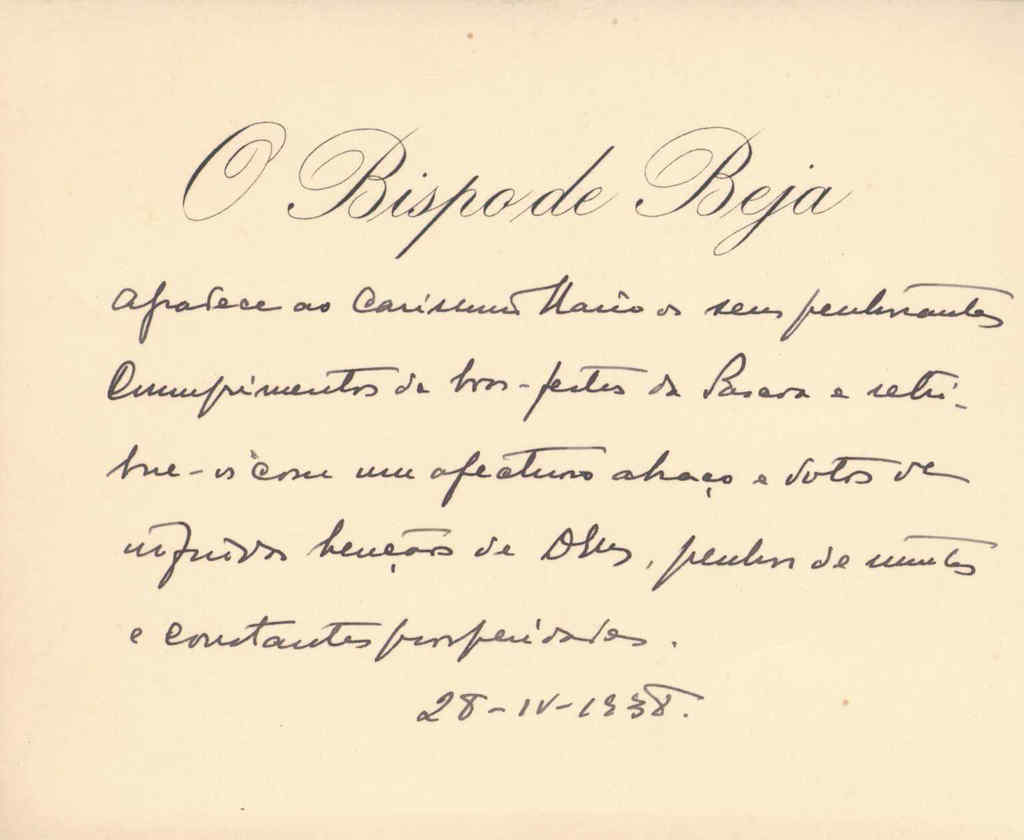 O Bispo de Beja
agradece ao Carissimo Mario os seus penhorantes
Cumprimentos de boas-festas da Pascoa e retri-
bue-os com um afectuoso abraço e votos de
infinidas bençãos de Deus, penhor de muitas
e constantes prosperidades.
28-IV-1938.